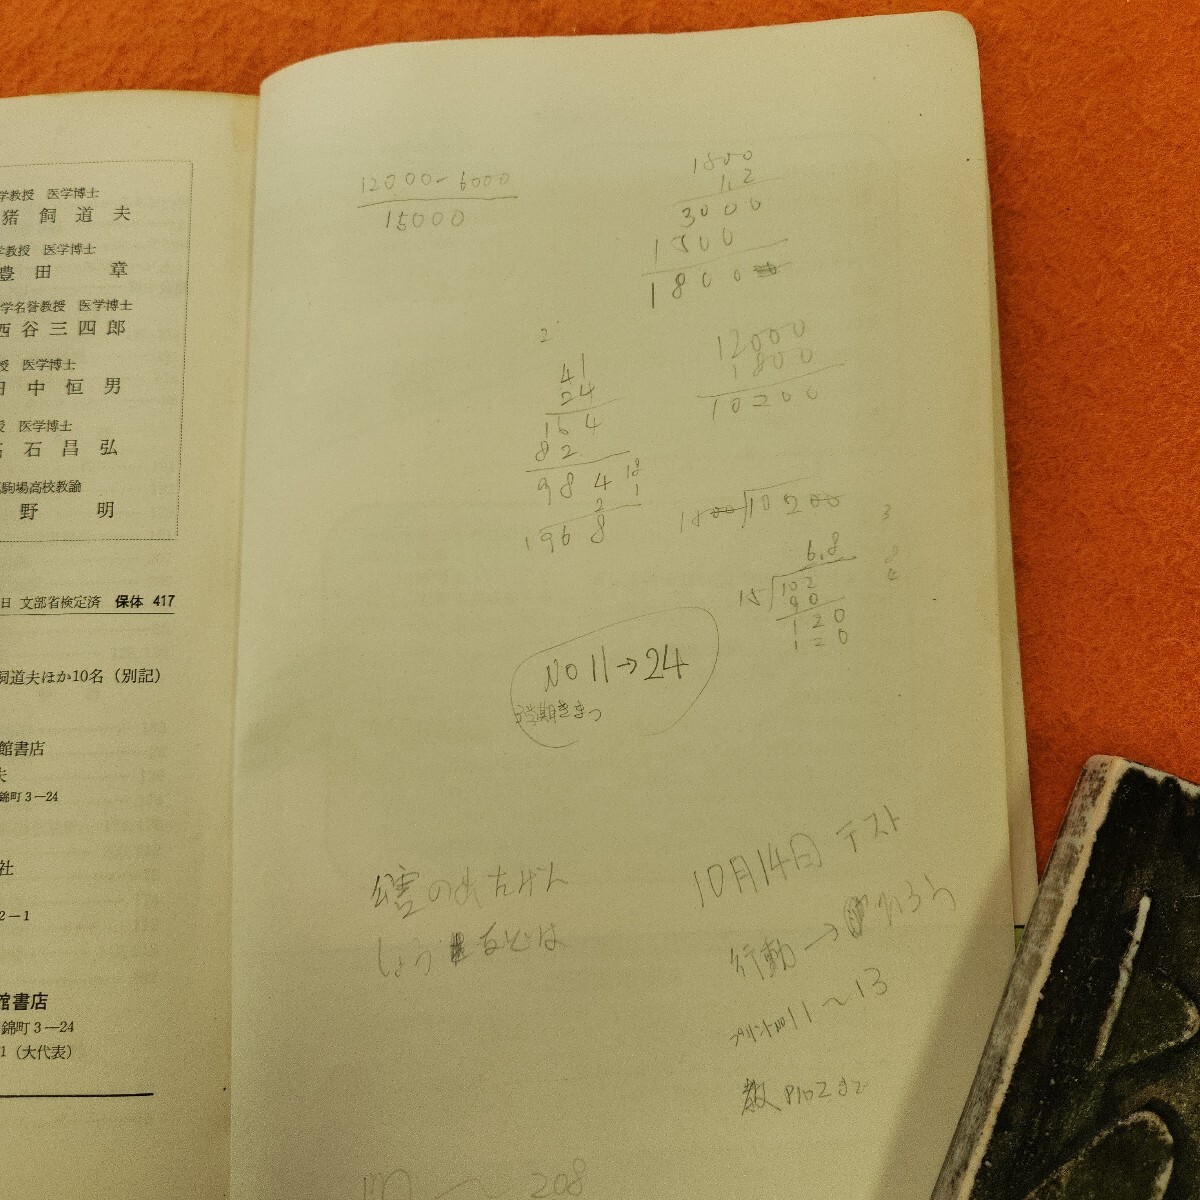 学教授 医学博士
猪飼道夫
学教授 医学博士
豊田 章
学名誉教授 医学博士
西谷三四郎
授 医学博士
田中恒男
授 医学博士
高石昌弘
駒場高校教諭
野 明
日 文部省検定済 保体 417
飼道夫ほか10名(別記)
館書店
夫
錦町3―24
社
2―1
館書店
錦町3―24
1(大代表)
12000-6000
15000
1500
1.2
3000
1500
1800
2
41
24
164
82
984
2
1968
12000
1800
10200
10200
6.8
15 102
90
120
120
3
8
NO 11→24
3学期きまつ
しょう
などは
10月14日 テスト
行動→
プリントNO11~13
教 P102まで
208